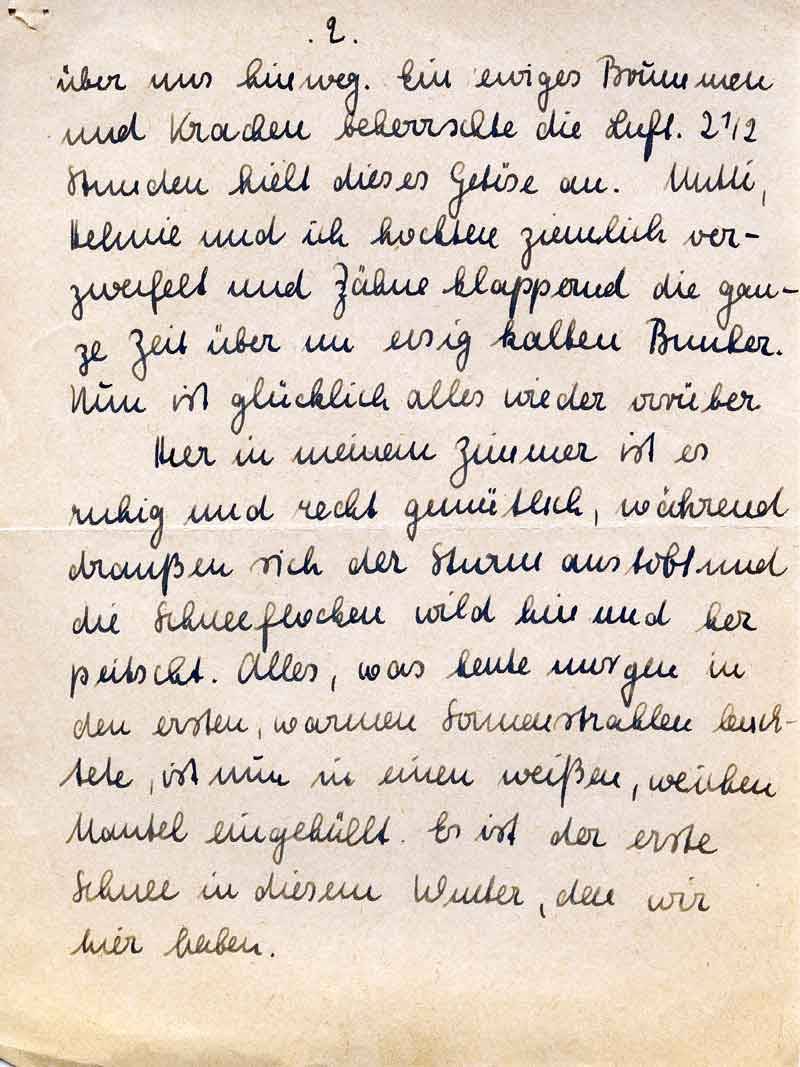 .2.
über uns hinweg. Ein ewiges Brummen
und Krachen beherrschte die Luft. 2 1/2
Stunden hielt dieses Getöse an. Mutti,
Helmie und ich hockten ziemlich ver-
zweifelt und Zähne klappernd die gan-
ze Zeit über im eisig kalten Bunker.
Nun ist glücklich alles wieder vorüber
Hier in meinem Zimmer ist es
ruhig und recht gemütlich, während
draußen sich der Sturm austobt und
die Schneeflocken wild hin und her
peitscht. Alles, was heute morgen in
den ersten, warmen Sonnenstrahlen leuch-
tete, ist nun in einen weißen, weichen
Mantel eingehüllt. Es ist der erste
Schnee in diesem Winter, den wir
hier haben.